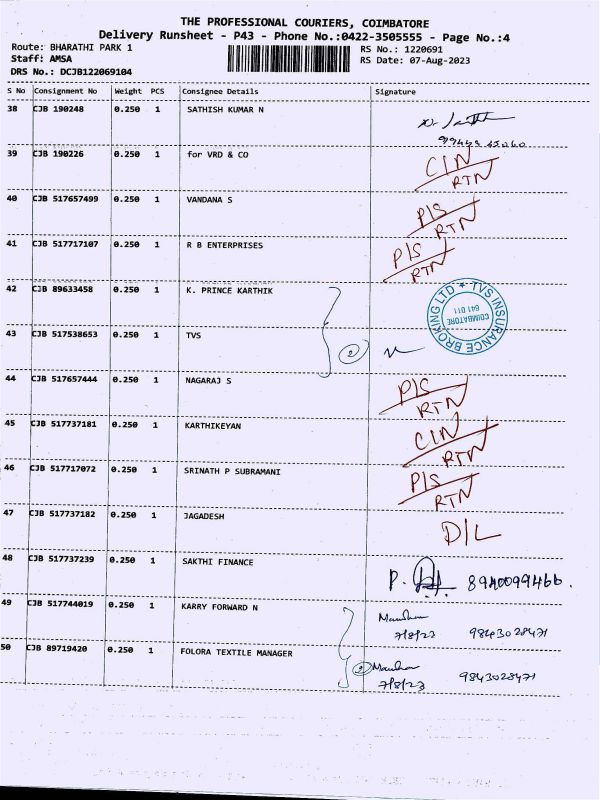 THE PROFESSIONAL COURIERS, COIMBATORE
Delivery Runsheet - P43 - Phone No.:0422-3505555 - Page No.:4
Route: BHARATHI PARK 1 RS No.: 1220691
Staff: AMSA RS Date: 07-Aug-2023
DRS No.: DCJB122069104
S No Consignment No Weight PCS Consignee Details Signature
38 CJB 190248 0.250 1 SATHISH KUMAR N
39 CJB 190226 0.250 1 for VRD & CO C/N
RTN
40 CJB 517657499 0.250 1 VANDANA S P/S
RTN
41 CJB 517717107 0.250 1 R B ENTERPRISES P/S
RTN
42 CJB 89633458 0.250 1 K. PRINCE KARTHIK
TVS INSURANCE BROKING LTD
COIMBATORE
641 011
43 CJB 517538653 0.250 1 TVS
2
44 CJB 517657444 0.250 1 NAGARAJ S P/S
RTN
45 CJB 517737181 0.250 1 KARTHIKEYAN C/N
RTN
46 CJB 517717072 0.250 1 SRINATH P SUBRAMANI P/S
RTN
47 CJB 517737182 0.250 1 JAGADESH D/L
48 CJB 517737239 0.250 1 SAKTHI FINANCE P. 8940099466.
49 CJB 517744019 0.250 1 KARRY FORWARD N
7/8/23 9843028471
50 CJB 89719420 0.250 1 FOLORA TEXTILE MANAGER 2
7/8/23 9843028471